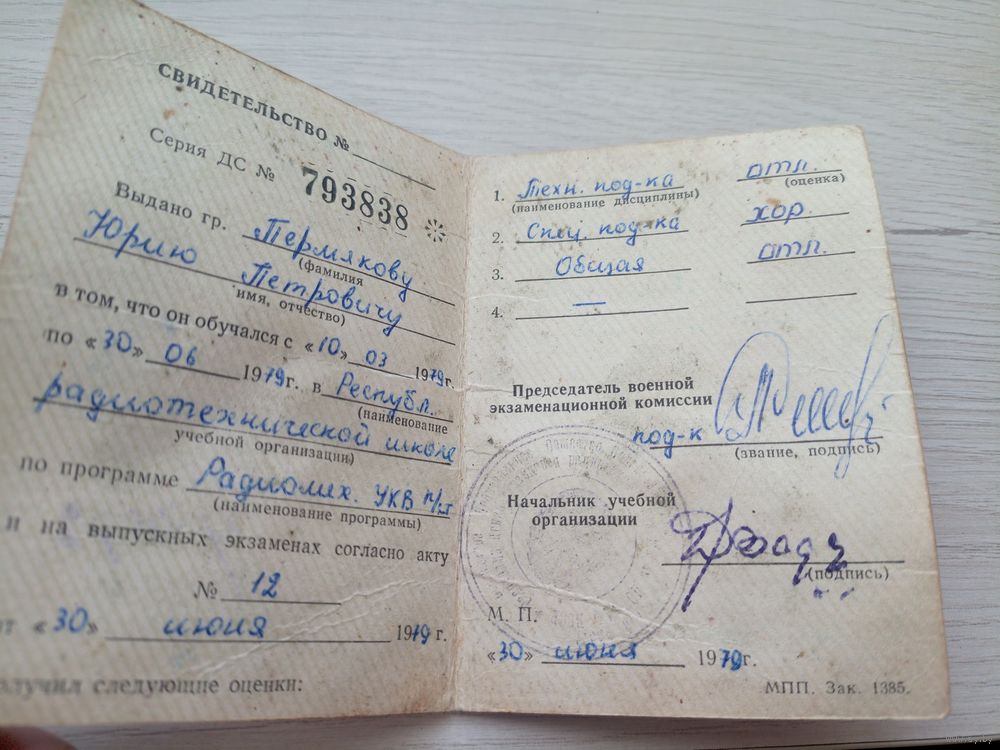 СВИДЕТЕЛЬСТВО №
Серия ДС № 793838
Выдано гр. Пермякову
(фамилия
Юрию Петровичу
имя, отчество)
в том, что он обучался с «10» 03 1979г.
по «30» 06 1979г. в Республ.
(наименование
радиотехнической школе
учебной организации)
по программе Радиомех. УКВ р/ст
(наименование программы)
и на выпускных экзаменах согласно акту
№ 12
от «30» июня 1979 г.
получил следующие оценки:
1. Техн. под-ка отл.
(наименование дисциплины) (оценка)
2. Спец. под-ка хор.
3. Общая отл.
4. —
Председатель военной
экзаменационной комиссии
под-к
(звание, подпись)
Начальник учебной
организации
(подпись)
М. П.
«30» июня 1979г.
МПП. Зак. 1385.